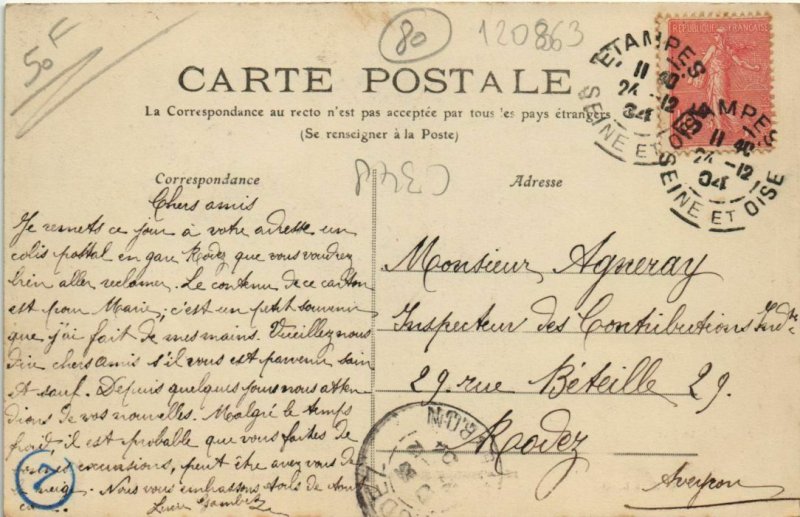 50F
80
120863
CARTE POSTALE
La Correspondance au recto n'est pas acceptée par tous les pays étrangers
(Se renseigner à la Poste)
RÉPUBLIQUE FRANÇAISE
ETAMPES
11
24 -12
04
SEINE ET OISE
ETAMPES
11 40
24 -12
04
SEINE ET OISE
Correspondance
Chers amis
Je remets ce jour à votre adresse un
colis postal en gare Rodez que vous voudrez
bien aller réclamer. Le contenu de ce carton
est pour Marie, c'est un petit souvenir
que j'ai fait de mes mains. Veuillez nous
dire chers amis s'il vous est parvenu sain
et sauf. Depuis quelques jours nous atten
dions de vos nouvelles. Malgré le temps
froid, il est probable que vous faites de
excursions, peut être avez vous de
neige. Nous vous embrassons tous de tout
Lucie
7
Adresse
Monsieur Agneray
Inspecteur des Contributions Indtes
29. rue Béteille 29.
Rodez
Aveyron